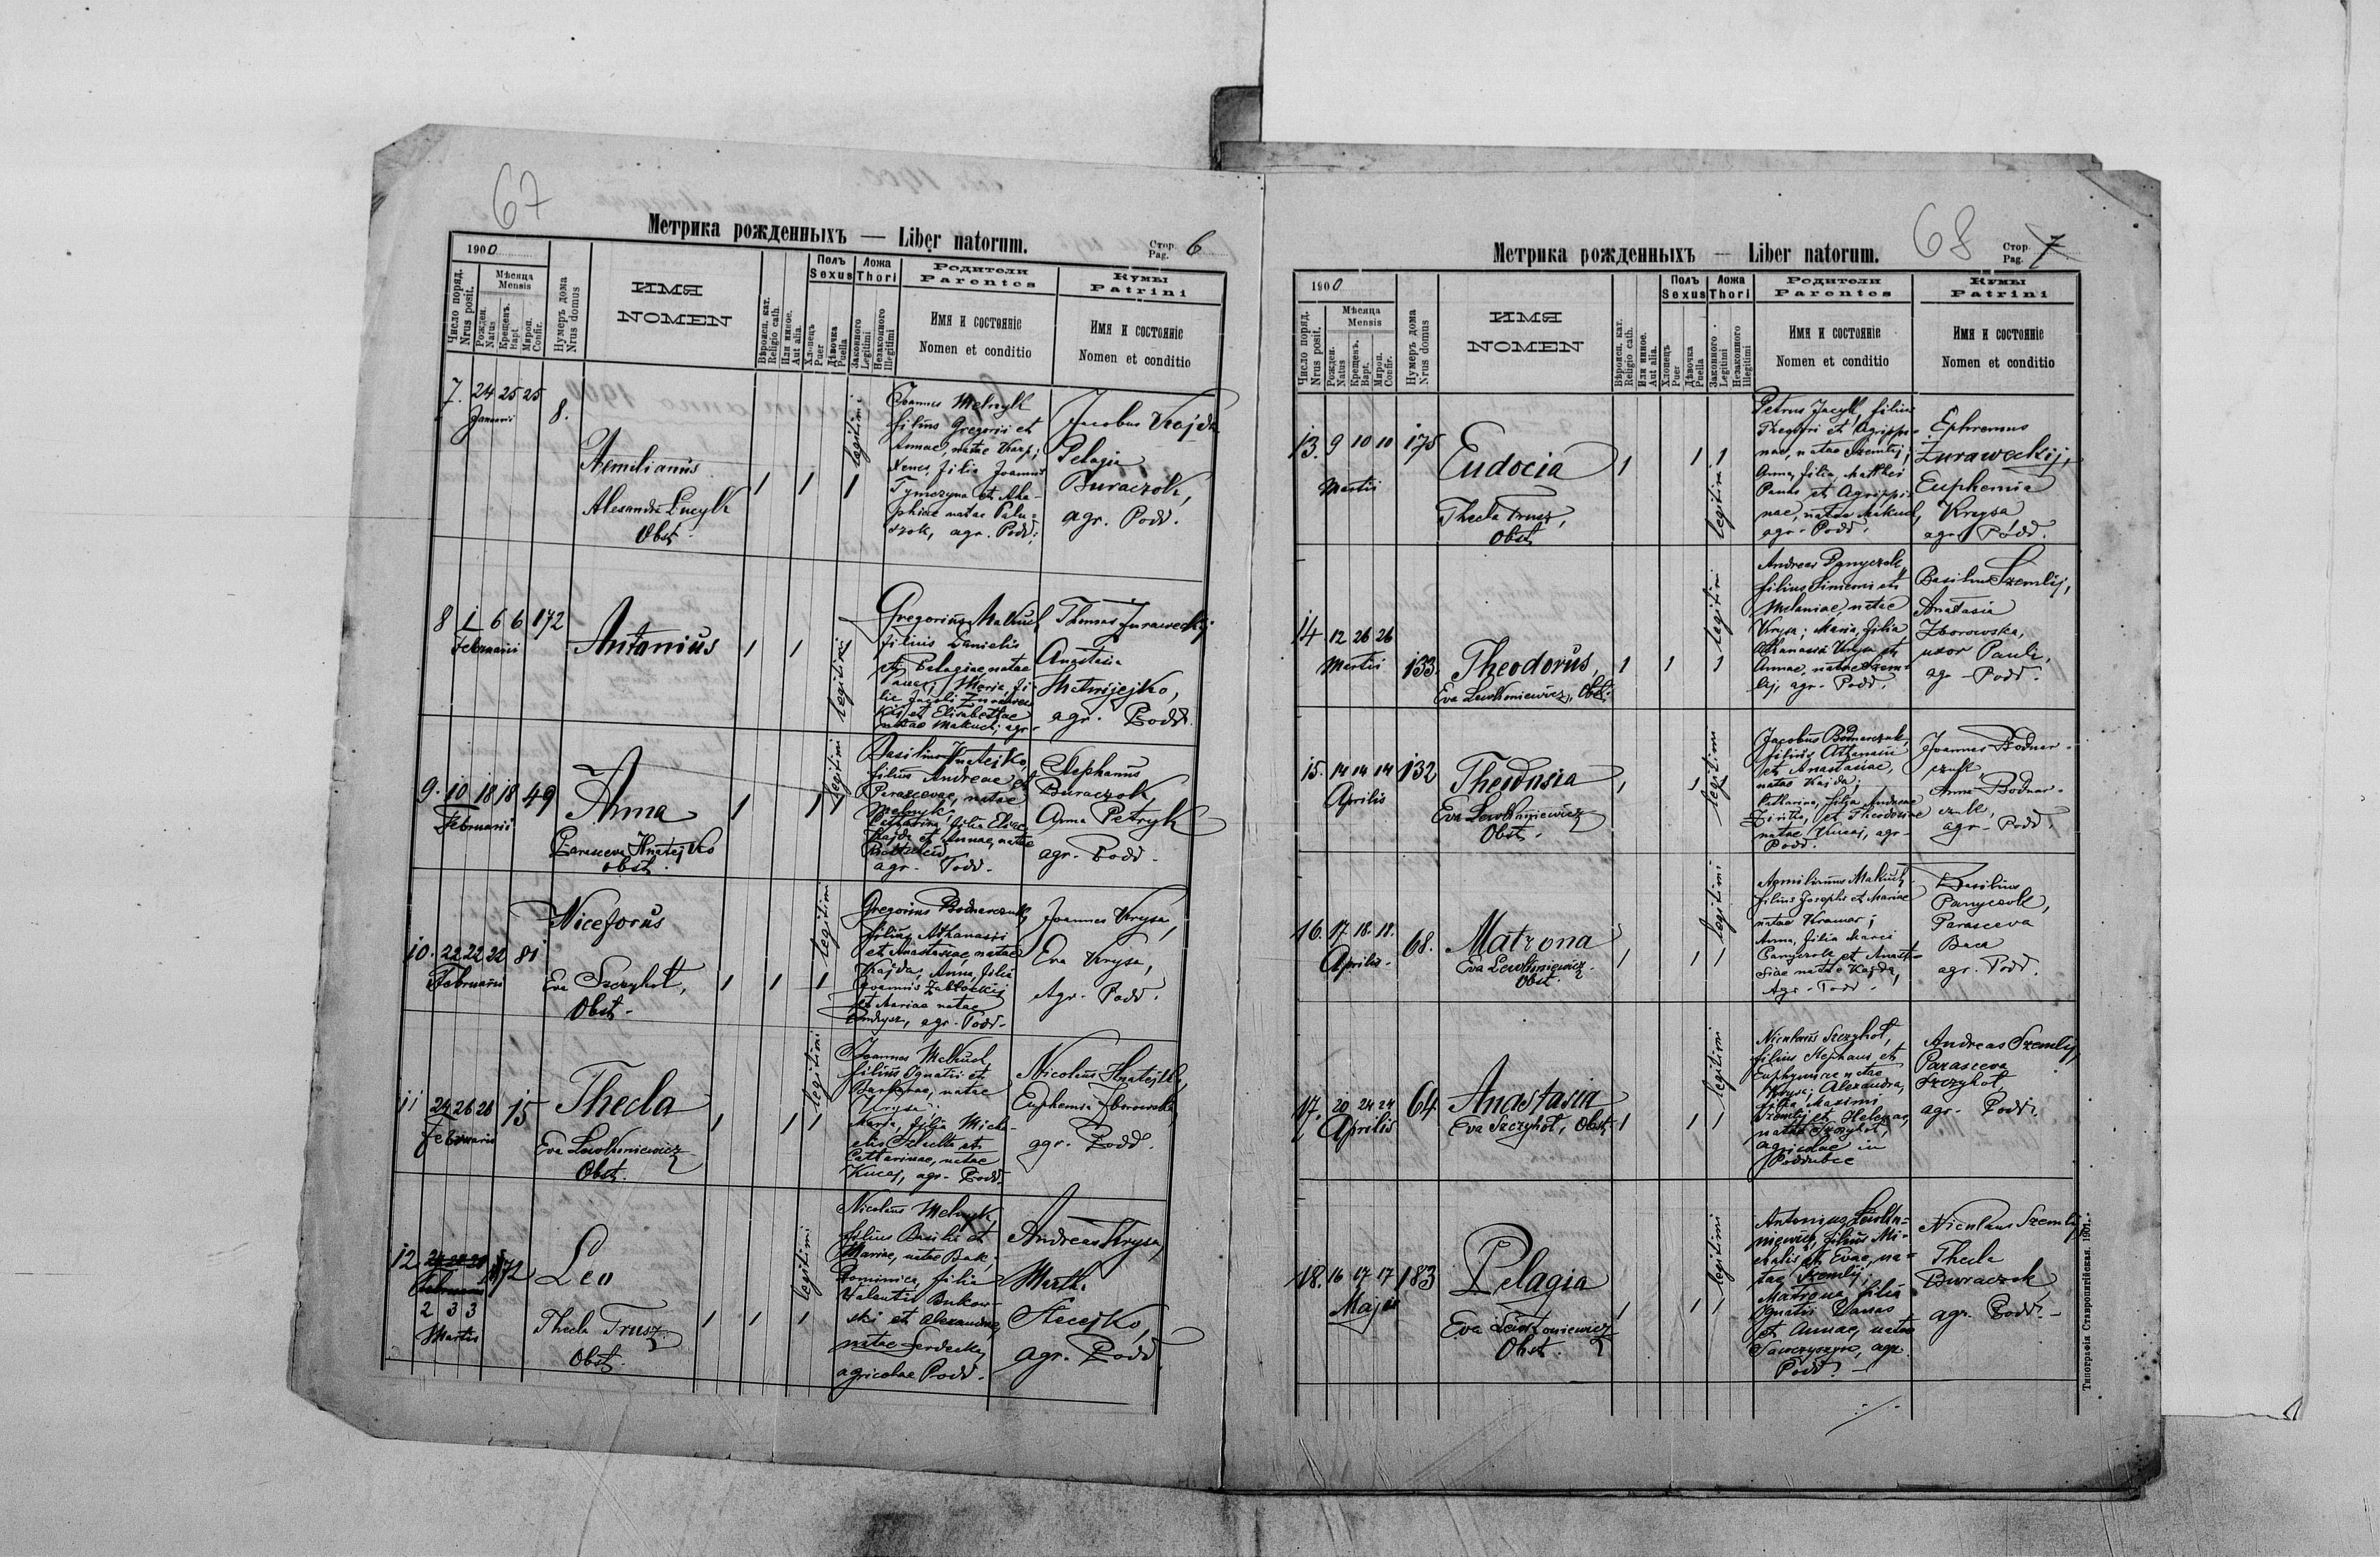 67
Метрика рожденныхъ — Liber natorum.
Стор. Pag. 6
1900
Число поряд. Nrus posit.
Мѣсяца Mensis
Рожден. Natus
Крещенъ. Bapt.
Мироп. Confir.
Нумеръ дома Nrus domus
ИМЯ
NOMEN
Вѣроисп. кат. Religio cath.
Или иное. Aut alia.
Полъ
Sexus
Хлопецъ Puer
Дѣвочка Puella
Ложа
Thori
Законного Legitimi
Незаконного Illegitimi
Родители
Parentes
Имя и состояніе
Nomen et conditio
Кумы
Patrini
Имя и состояніе
Nomen et conditio
7. 24 25 25
Januarii
8.
Aemilianus
Alexandra Lucyk
Obst.
1 1 1
legitimi
Joannes Melnyk
filius Gregorii et
Annae, natae Karp;
filia Joannis
Tymczyna et Aga-
phiae natae Palu-
szok, agr. Podd.
Jacobus Kajda
Pelagia
Buraczok,
agr. Podd.
8 1 6 6 172
Februarii
Antonius
1 1
legitimi
Gregorius Makuch
filius Danielis
et Pelagiae natae
Maria, fi-
lia Pauli Zurawec-
kij et Elisabethae
natae Makuch, agr.
Thomas Zuraweckij
Anastasia
Matwijejko,
agr. Podd.
9. 10 18 18 49
Februarii
Anna
Parasceva Hnatejko
obst.
1 1
legitimi
Basilius Hnatejko,
filius Andreae et
Parascevae, natae
Melnyk;
Catharina, filia Eliae
Kajda et Annae, natae
agr. Podd.
Stephanus
Buraczok,
Anna Petryk
agr. Podd.
10. 22 22 22 81
Februarii
Niceforus
Eva Szczyhot,
Obst.
1 1 1
legitimi
Gregorius Bodnarczuk,
filius Athanasii
et Anastasiae, natae
Kajda; Anna, filia
Joannis Zabłockij
et Mariae natae
agr. Podd.
Joannes Krysa,
Eva Krysa,
Agr. Podd.
11 24 26 26 15
Februarii
Thecla
Eva Lewkoniewicz
Obst.
1 1 1
legitimi
Joannes Makuch,
filius Ignatii et
Barbarae, natae
Krysa;
Maria, filia Mich-
elis Szluchta et
Catharinae, natae
Kucaj, agr. Podd.
Nicolaus Hnatejko,
Euphemia Zborowska,
agr. Podd.
12. 28 28 28 172
Februarii
2 3 3
Martii
Leo
Thecla Trusz
Obst.
1 1 1
legitimi
Nicolaus Melnyk,
filius Basilii et
Mariae, natae Bak;
Dominica, filia
Valentii Bukow-
ski et Alexandrae,
natae Serdecky
agricolae Podd.
Andreas Krysa,
Martha
Stecejko,
agr. Podd.
68
Метрика рожденныхъ — Liber natorum.
Стор. Pag. 7
1900
Число поряд. Nrus posit.
Мѣсяца Mensis
Рожден. Natus
Крещенъ. Bapt.
Мироп. Confir.
Нумеръ дома Nrus domus
ИМЯ
NOMEN
Вѣроисп. кат. Religio cath.
Или иное. Aut alia.
Полъ
Sexus
Хлопецъ Puer
Дѣвочка Puella
Ложа
Thori
Законного Legitimi
Незаконного Illegitimi
Родители
Parentes
Имя и состояніе
Nomen et conditio
Кумы
Patrini
Имя и состояніе
Nomen et conditio
13. 9 10 10 175
Martii
Eudocia
Thecla Trusz,
Obst.
1 1 1
legitimi
Petrus Jacyk, filius
Gregorii et Agrippi-
nae, natae Szemlij;
Anna, filia Matthei
et Agrippi-
nae, natae Makuch,
agr. Podd.
Ephremus
Zuraweckij,
Euphemia
Krysa
agr. Podd.
14 12 26 26
Martii 133.
Theodorus,
Eva Lewkoniewicz, Obst.
1 1 1
legitimi
Andreas Panyczok,
filius Simeonis et
Melaniae, natae
Krysa; Maria, filia
Athanasii Krysa et
Annae, natae Szem-
lij, agr. Podd.
Basilius Szemlij,
Anastasia
Zborowska,
uxor Pauli,
agr. Podd.
15. 14 14 14 132
Aprilis
Theodosia
Eva Lewkoniewicz
Obst.
1 1 1
legitimi
Jacobus Bodnarczuk,
filius Athanasii
et Anastasiae,
natae Kajda;
Catharina, filia Andreae
et Theodosiae
natae Kucaj, agr.
Podd.
Joannes Bodnar-
czuk,
Anna Bodnar-
czuk,
agr. Podd.
16. 17. 18. 18. 68.
Aprilis
Matrona
Eva Lewkoniewicz
Obst.
1 1 1
legitimi
Aemilianus Makuch,
filius Josephi et Mariae
natae Kramar;
Anna, filia Marci
Panyczok et Anasta-
siae natae Kajda,
Agr. Podd.
Basilius
Panyczok,
Parasceva
Baca
agr. Podd.
17. 20 24 24 64
Aprilis
Anastasia
Eva Szczyhot, Obst.
1 1 1
legitimi
Nicolaus Szczyhot,
filius Stephani et
Euphymiae natae
Krysa; Alexandra,
filia Maximi
Szemlij et Helenae,
natae Szczyhot,
agricolae in
Poddubce
Andreas Szemlij,
Parasceva
Szczyhot,
agr. Podd.
18. 16 17 17 183
Maji
Pelagia
Eva Lewkoniewicz
Obst.
1 1 1
legitimi
Antonius Lewko-
niewicz, filius Mi-
chalis et Evae, na-
tae Szemlij;
Matrona, filia
Ignatii Panas
et Annae, natae
Sawczyszyn, agr.
Podd.
Nicolaus Szemlij
Thecla
Buraczok
agr. Podd.
Типографія Ставропигійская. 1901.